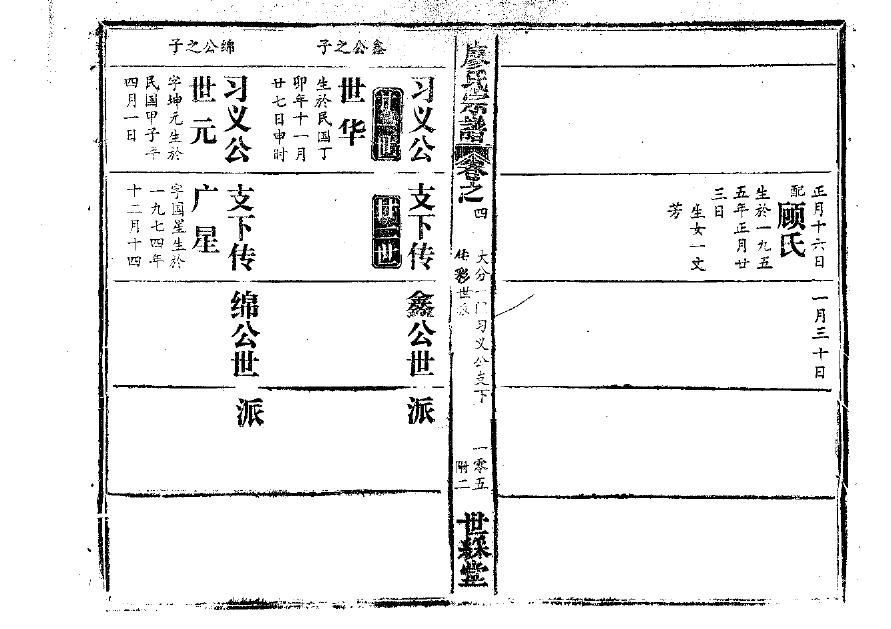 正月十六日
一月三十日
配顾氏
生於一九五
五年正月廿
三日
生女一文
芳
廖氏宗譜
卷之四
大分一门习义公支下
传彩世派
一零五
附二
世綵堂
习义公支下传鑫公世派
廿一世
廿二世
鑫公之子
世华
生於民国丁
卯年十一月
廿七日申时
习义公支下传绵公世派
绵公之子
世元
字坤元生於
民国甲子年
四月一日
广星
字国星生於
一九七四年
十二月十四